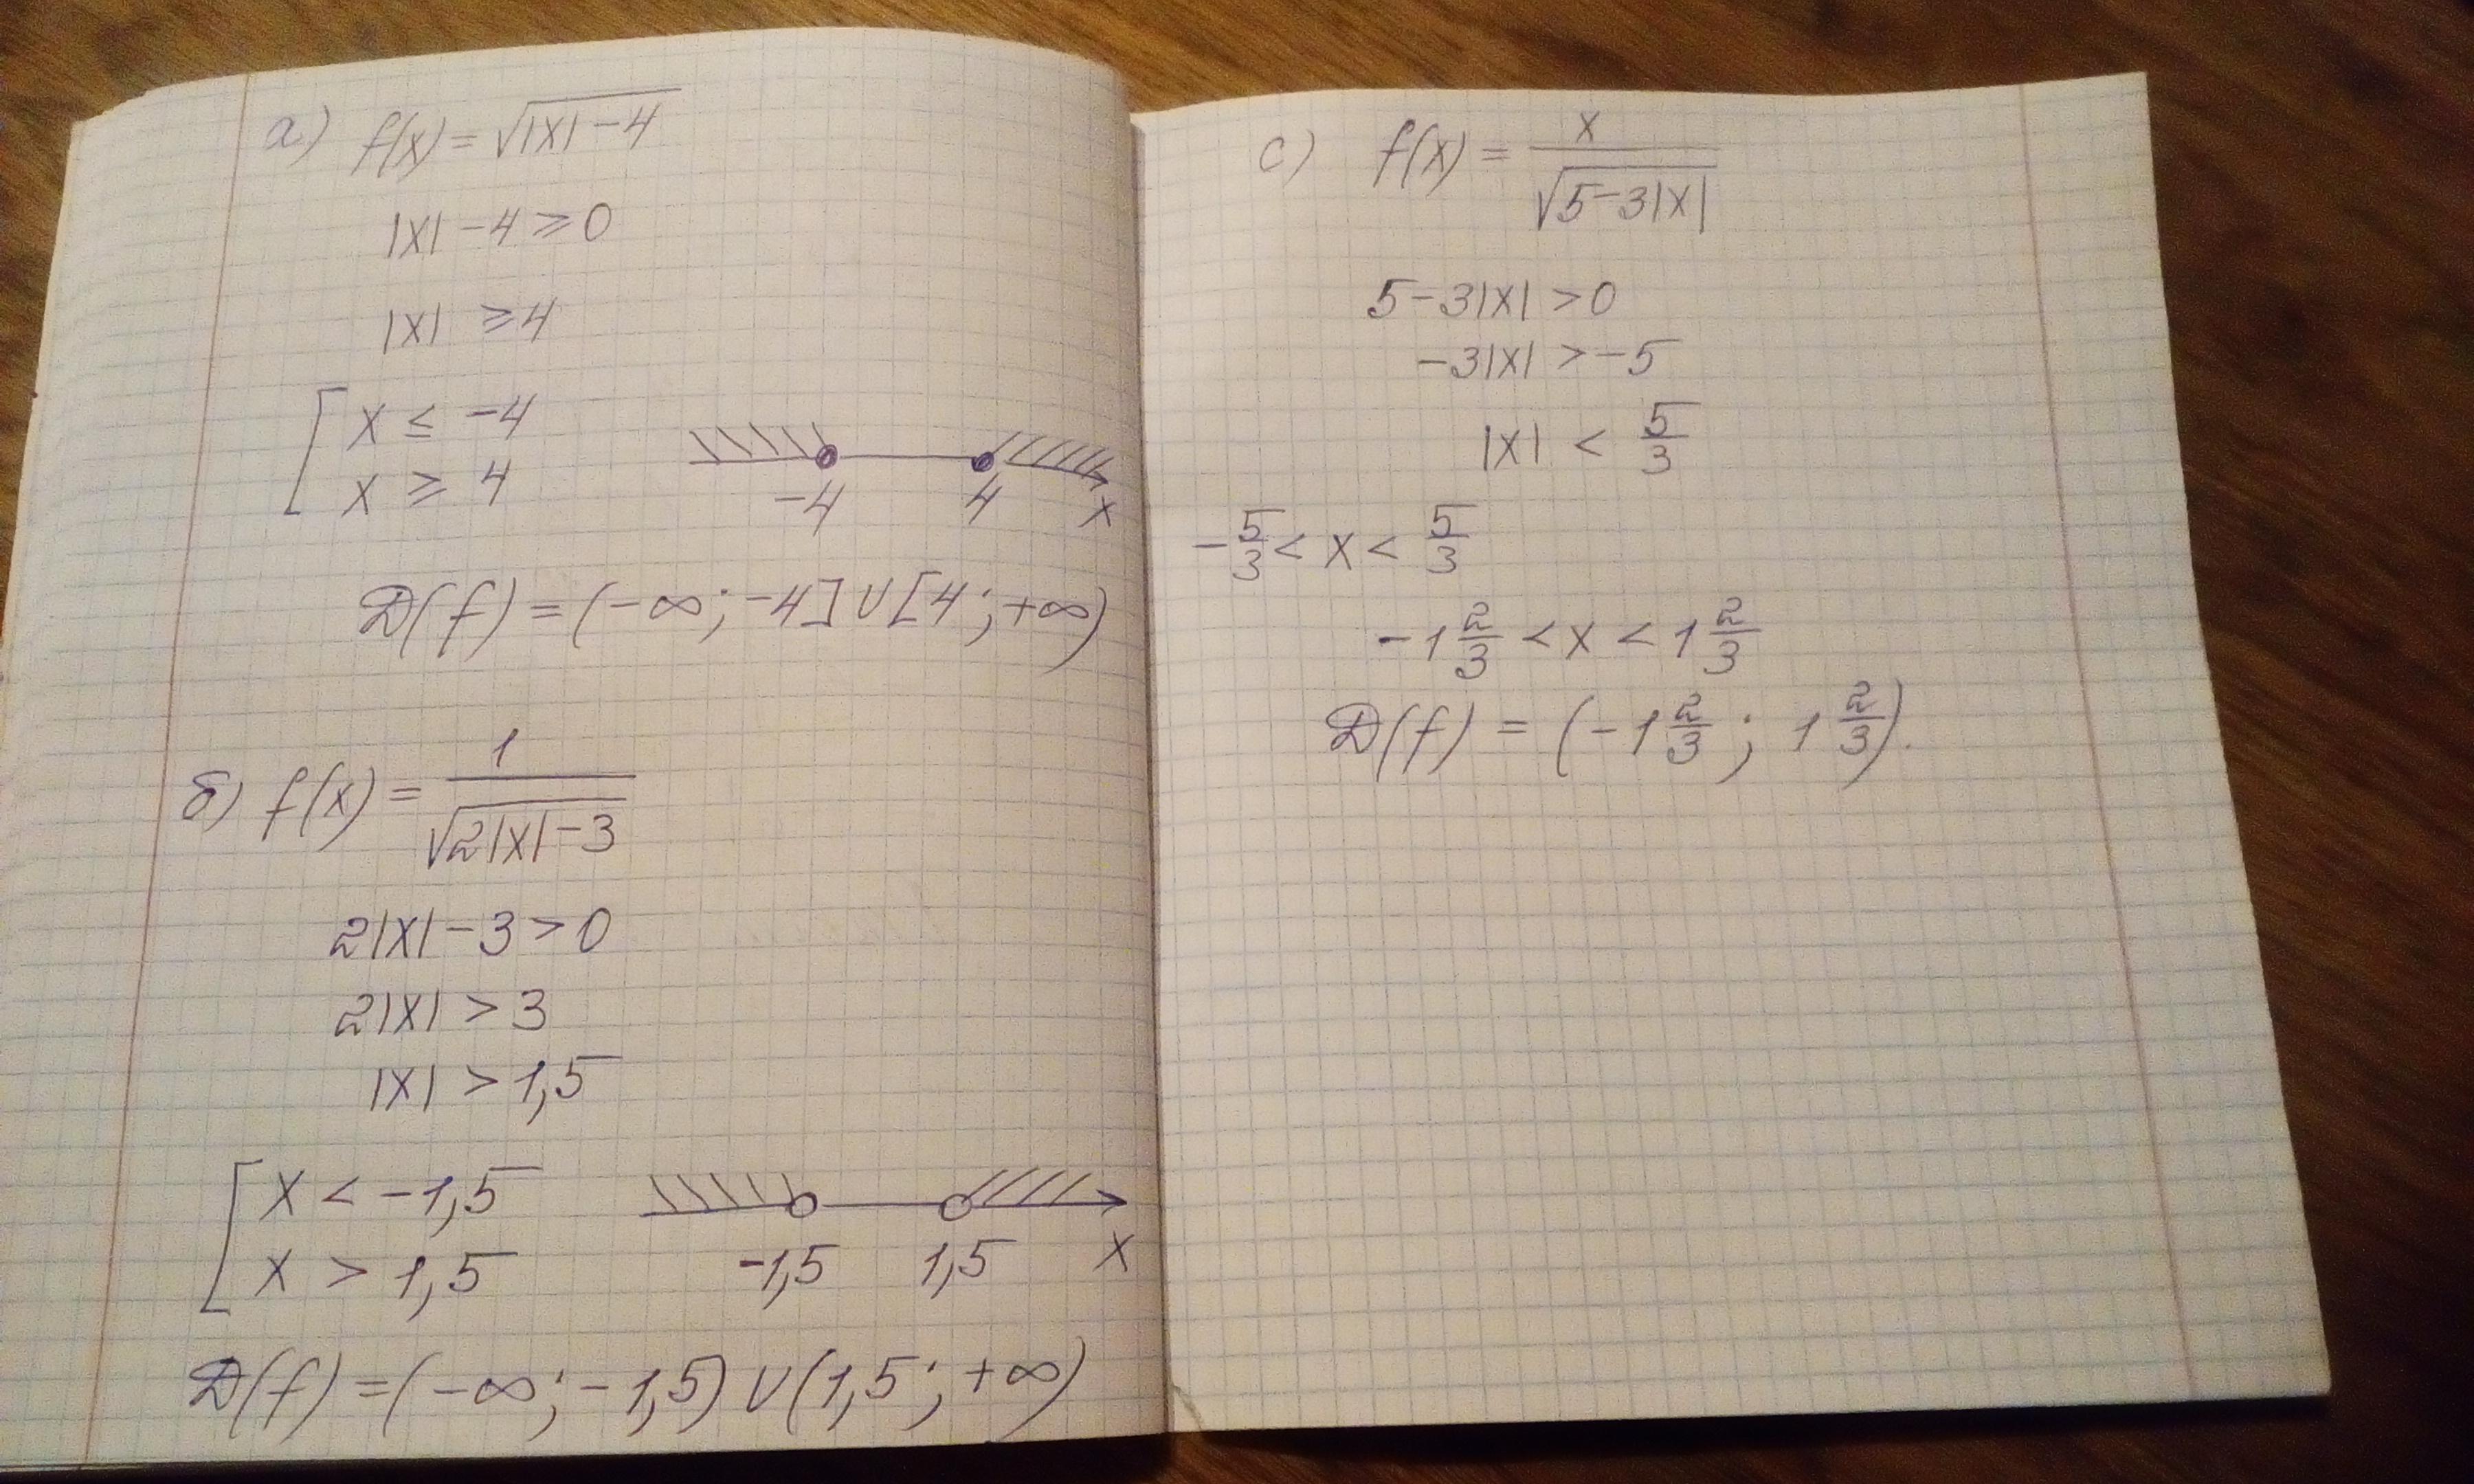 а) f(x) = √(|x| - 4)
|x| - 4 ⩾ 0
|x| ⩾ 4
[ x ≤ -4
x ⩾ 4
-4 4 x
D(f) = (-∞; -4] ∪ [4; +∞)
б) f(x) = 1/√(2|x| - 3)
2|x| - 3 > 0
2|x| > 3
|x| > 1,5
[ x < -1,5
x > 1,5
-1,5 1,5 x
D(f) = (-∞; -1,5) ∪ (1,5; +∞)
с) f(x) = x/√(5 - 3|x|)
5 - 3|x| > 0
-3|x| > -5
|x| < 5/3
-5/3 < x < 5/3
-1 2/3 < x < 1 2/3
D(f) = (-1 2/3; 1 2/3).